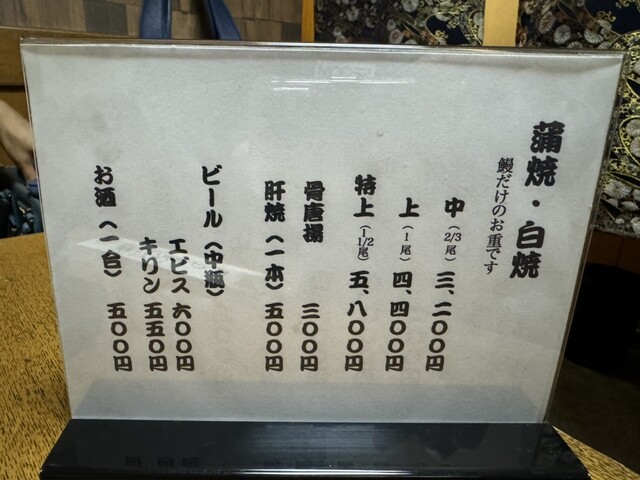 蒲焼・白焼
鰻だけのお重です
中（2/3尾）三、二〇〇円
上（1尾）四、四〇〇円
特上（1 1/2尾）五、八〇〇円
骨唐揚 三〇〇円
肝焼（一本）五〇〇円
ビール（中瓶）
エビス 六〇〇円
キリン 五五〇円
お酒（一合）五〇〇円